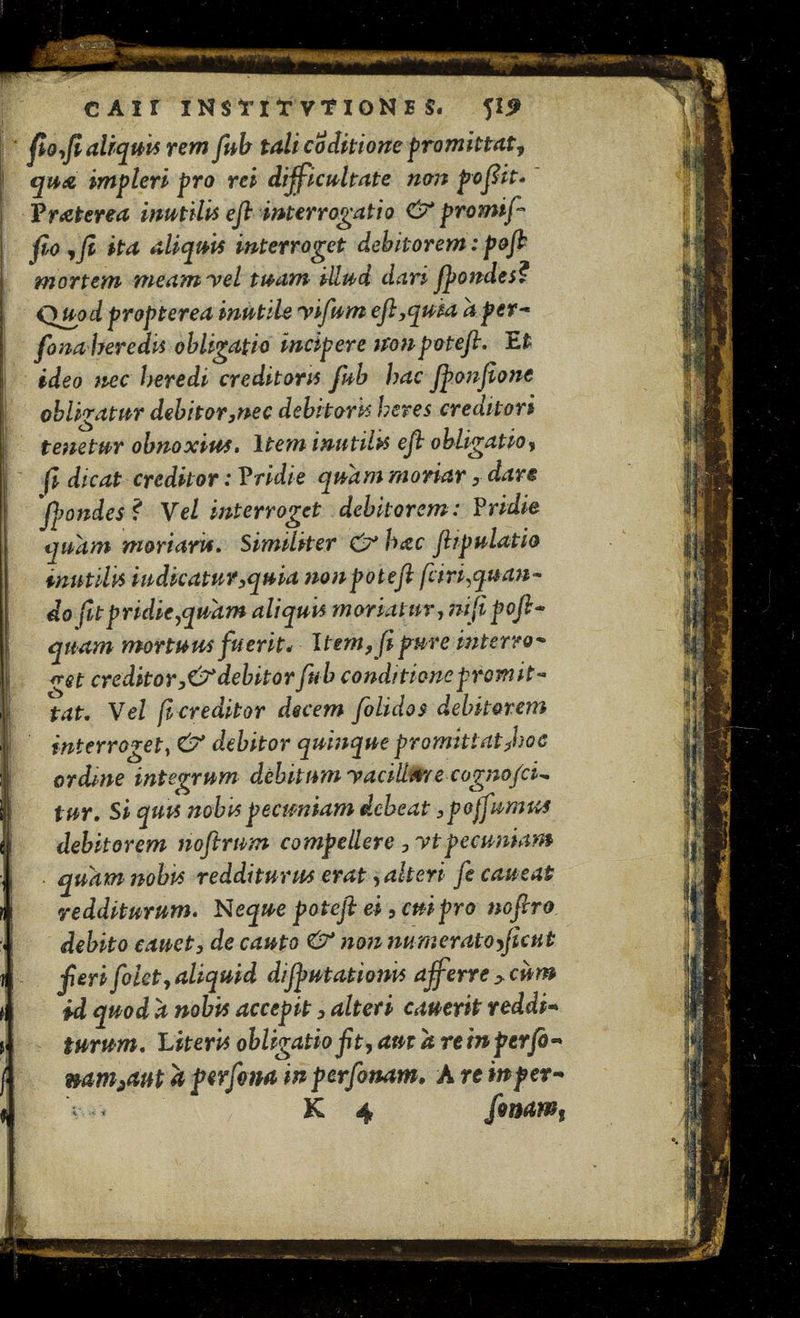 CAII INSTITVTIONES. 519
ſio,ſi aliquis rem ſub tali cõditione promittat,
quæ impleri pro rei difficultate non poßit.
Præterea inutilis eſt interrogatio & promiſ-
ſio, ſi ita aliquis interroget debitorem: poſt
mortem meam vel tuam illud dari ſpondes?
Quod propterea inutile viſum eſt, quia à per-
ſona heredis obligatio incipere non poteſt. Et
ideo nec heredi creditoris ſub hac ſponſione
obligatur debitor, nec debitoris heres creditori
tenetur obnoxius. Item inutilis eſt obligatio,
ſi dicat creditor: Pridie quàm moriar, dare
ſpondes? Vel interroget debitorem: Pridie
quàm moriaris. Similiter & hæc ſtipulatio
inutilis iudicatur, quia non poteſt ſciri, quan-
do ſit pridie, quàm aliquis moriatur, niſi poſt-
quam mortuus fuerit. Item, ſi pure interro-
get creditor, & debitor ſub conditione promit-
tat. Vel ſi creditor decem ſolidos debitorem
interroget, & debitor quinque promittat, hoc
ordine integrum debitum vacillare cognoſci-
tur. Si quis nobis pecuniam debeat, poſſumus
debitorem noſtrum compellere, vt pecuniam
quàm nobis redditurus erat, alteri ſe caueat
redditurum. Neque poteſt ei, cui pro noſtro
debito cauet, de cauto & non numerato, ſicut
fieri ſolet, aliquid diſputationis afferre, cùm
id quod à nobis accepit, alteri cauerit reddi-
turum. Literis obligatio fit, aut à re in perſo-
nam, aut à perſona in perſonam. A re in per-
K 4 ſonam,